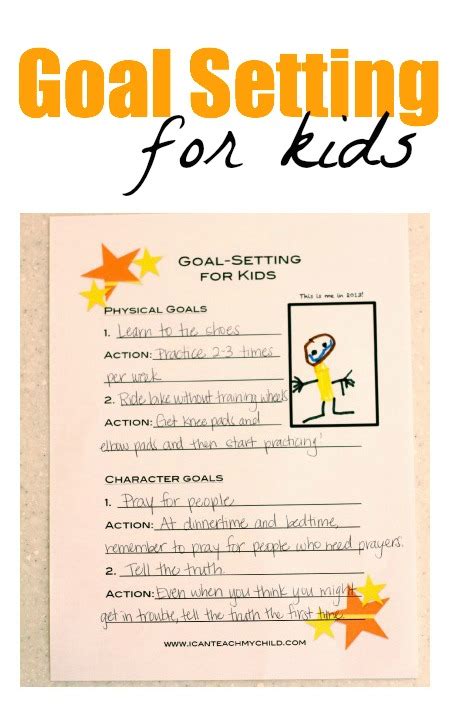 Goal Setting
for kids
GOAL-SETTING
FOR KIDS
This is me in 2013!
PHYSICAL GOALS
1. Learn to tie shoes
ACTION: Practice 2-3 times
per week
2. Ride bike without training wheels
ACTION: Get knee pads and
elbow pads and then start practicing!
CHARACTER GOALS
1. Pray for people
ACTION: At dinnertime and bedtime,
remember to pray for people who need prayers.
2. Tell the truth
ACTION: Even when you think you might
get in trouble, tell the truth the first time
WWW.ICANTEACHMYCHILD.COM